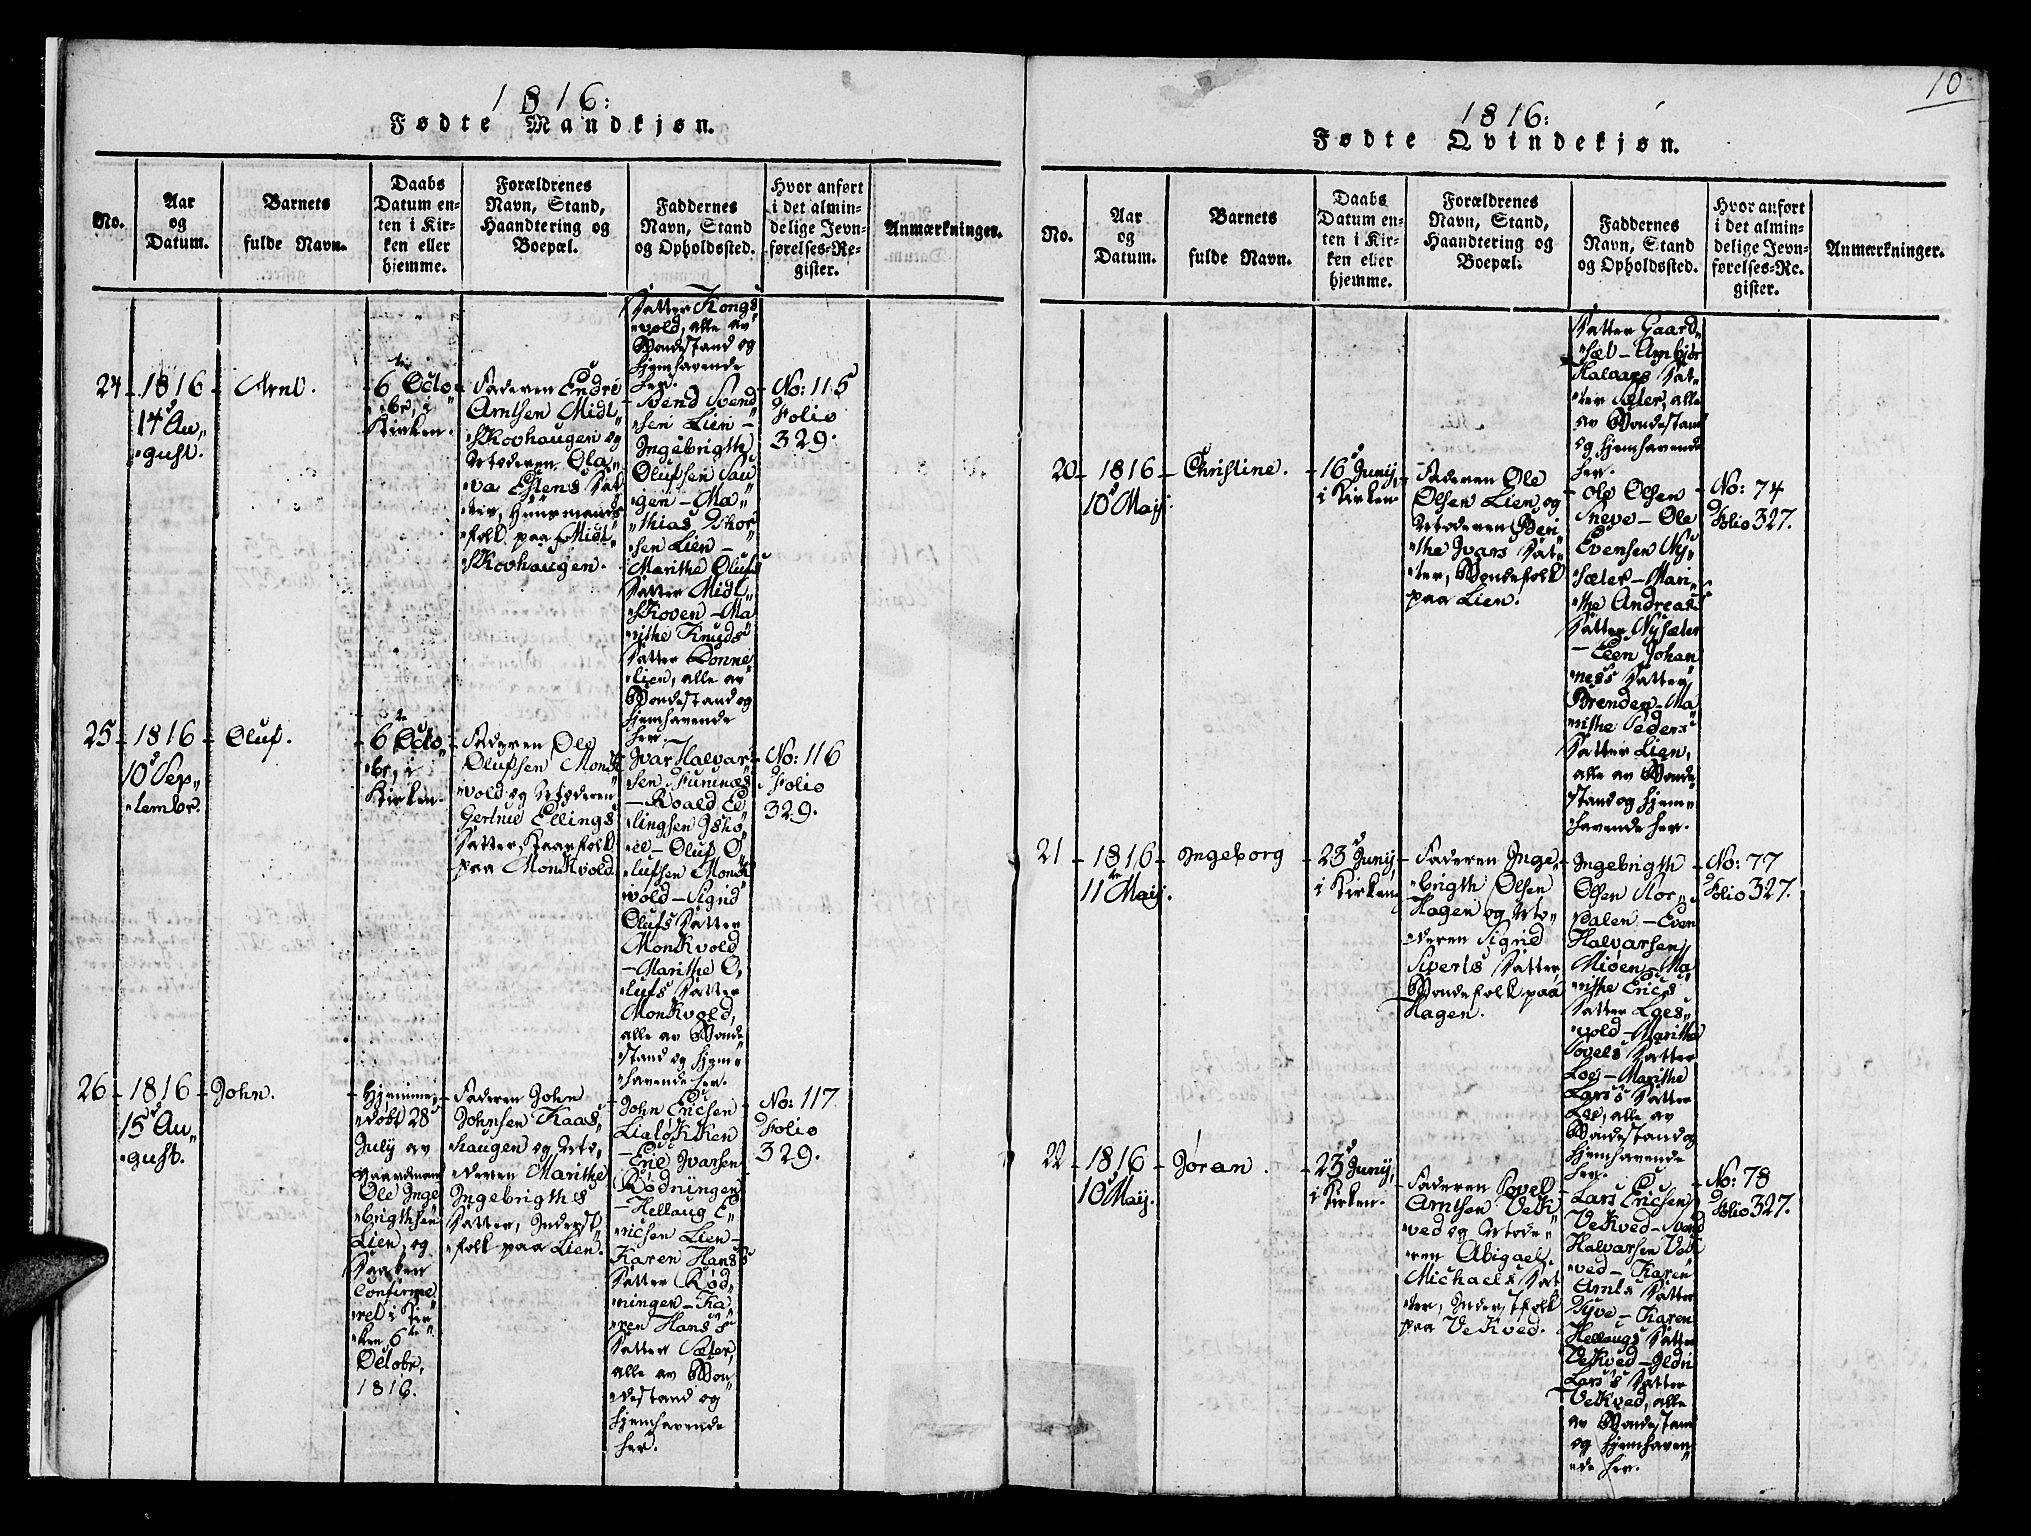 1816:
Fødte Mandkjøn.
No.
Aar
og
Datum.
Barnets
fulde Navn.
Daabs
Datum en-
ten i Kir-
ken eller
hjemme.
Forældrenes
Navn, Stand,
Haandtering og
Boepæl.
Faddernes
Navn, Stand
og Opholdssted.
Hvor anført
i det almin-
delige Jevn-
førelses-Re-
gister.
Anmærkninger.
Datter Kongs
"vold, alle av
Bondestand og
hjemhavende
her.
24
1816
14d Au,,
"gust.
Arnt.
6te Octo
"br, i
Kirken.
Faderen Endre
Arntsen Midt
"Skovhaugen og
Moderen Ola,,
va Estens Dat
"ter, Huusmands
"folk paa Midt
"Skovhaugen.
Svend Svend
"sen Lien –
Ingebrigth
Olufsen Hau
"gen – Ma,,
"thias Thor
"sen Lien –
Marithe Olufs
Datter Midt
"Skoven – Ma
"rithe Knuds
Datter Donne
"lien, alle av
Bondestand og
hjemhavende
her.
No: 115
Folio
329.
25
1816
10d Sep,,
"tembr.
Oluf.
6te Octo
"br, i
Kirken.
Faderen Ole
Olufsen Monk
"vold og Moderen
Gertrue Ellings
Datter, Kaarfolk
paa Monkvold.
Ivar Halvar
"sen Furunæs
– Roald El
"lingsen Ishø
"el – Oluf O
"lufsen Monk
"vold – Sigrid
Olufs Datter
Monkvold
– Marithe O,,
"lufs Datter
Monkvold,
alle av Bonde
"stand og hjem
"havende her.
No: 116
Folio
329.
26
1816
15d Au,,
"gust.
John.
Hjemme
"døbt 28d
July av
Gaardmand
Ole Inge
"brigthsen
Lien, og
Daaben
Confirme
"ret i Kir
"ken 6te
Octobr.
1816.
Faderen John
Johnsen Kaas,,
"haugen og Mo,,
"deren Marithe
Ingebrigths
Datter, Inderst
"folk paa Lien.
John Ericsen
Lialøkken
– Eric Ivarsen
Rødningen
– Hellaug E,,
"ricsen Lien –
Karen Hans's
Datter Rød,,
"ningen – Ka,,
"ren Hans's
Datter Sæter,
alle av Bon
"destand og
hjemhavende
her.
No: 117
Folio
329.
10
1816:
Fødte Qvindekjøn.
No.
Aar
og
Datum.
Barnets
fulde Navn.
Daabs
Datum en-
ten i Kir-
ken eller
hjemme.
Forældrenes
Navn, Stand,
Haandtering og
Boepæl.
Faddernes
Navn, Stand
og Opholdssted.
Hvor anført
i det almin-
delige Jevn-
førelses-Re-
gister.
Anmærkninger.
Datter Gaard
"Sæt – Anbjør
Halvars Dat,,
"ter Sæter, alle
av Bondestand
og hjemhavende
her.
20
1816
10d Maij.
Christine.
16d Juny,
i Kirken
Faderen Ole
Olsen Lien, og
Moderen Beri
"the Ivars Dat,,
"ter, Bondefolk
paa Lien.
Ole Olsen
Sneve – Ole
Evensen Ny,,
"sæter – Mari,,
"the Andreas's
Datter Nysæter
– Elen Johan
"ness Datter
Brenden – Ma
"rithe Peders
Datter Lien,
alle av Bonde
"stand og hjem,,
"havende her.
No: 74
Folio 327.
21
1816
11te Maij.
Ingeborg
23d Juny,
i Kirken
Faderen Inge,,
"brigth Olsen
Hagen og Mo,,
"deren Sigrid
Siverts Datter,
Bondefolk paa
Hagen.
Ingebrigth
Olsen Nor,,
"dalen – Even
Halvarsen
Miøen – Ma
"rithe Erics
Datter Loes,,
"vold – Marithe
Povels Datter
Loe – Marithe
Lars's Datter
Loe, alle av
Bondestand og
hjemhavende
her.
No: 77
Folio 327.
22
1816
10d Maij.
Jøran.
23d Juny,
i Kirken.
Faderen Povel
Arntsen Vek
"ved og Mode,,
"ren Abigael
Michaels Dat
"ter, Inderstfolk
paa Vekved.
Lars Ericsen
Vekved – Svend
Halvarsen Vek
"ved – Karen
Arnts Datter
Hyve – Karen
Hellaugs Datter
Vekved – Ildri
Lars's Datter
Vekved, alle
av Bondestand
og hjemhaven
"de her.
No: 78
Folio 327.